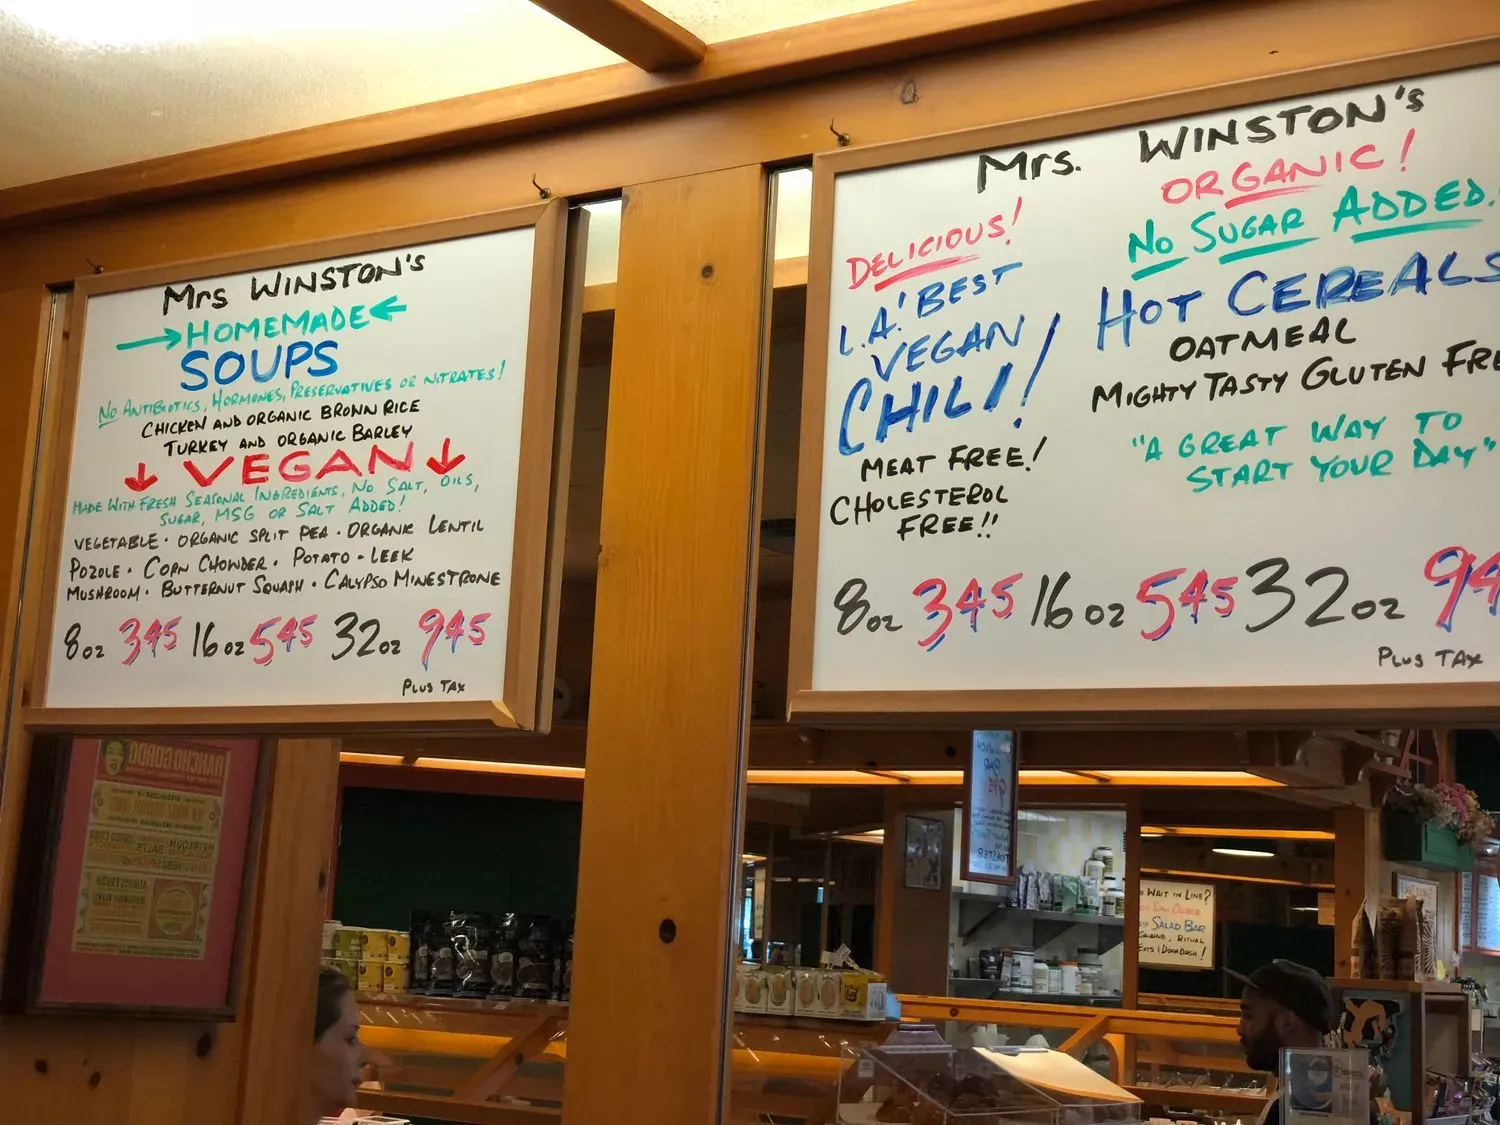 Mrs WINSTON's
HOMEMADE
SOUPS
No ANTIBIOTICS, HORMONES, PRESERVATIVES OR NITRATES!
CHICKEN AND ORGANIC BROWN RICE
TURKEY AND ORGANIC BARLEY
VEGAN
MADE WITH FRESH SEASONAL INGREDIENTS, NO SALT, OILS,
SUGAR, MSG OR SALT ADDED!
VEGETABLE · ORGANIC SPLIT PEA · ORGANIC LENTIL
POZOLE · CORN CHOWDER · POTATO - LEEK
MUSHROOM · BUTTERNUT SQUASH · CALYPSO MINESTRONE
8oz 345 16oz 545 32oz 945
PLUS TAX
Mrs. WINSTON's
ORGANIC!
No SUGAR ADDED.
HOT CEREALS
OATMEAL
MIGHTY TASTY GLUTEN FRE
"A GREAT WAY TO
START YOUR DAY"
DELICIOUS!
L.A.' BEST
VEGAN
CHILI!
MEAT FREE!
CHOLESTEROL
FREE!!
8oz 345 16oz 545 32oz 94
PLUS TAX
RANCHO GORDO
BAR
TOASTER
WAIT IN LINE?
CAN ORDER
SALAD BAR
RITUAL
EATS & DOORDASH!